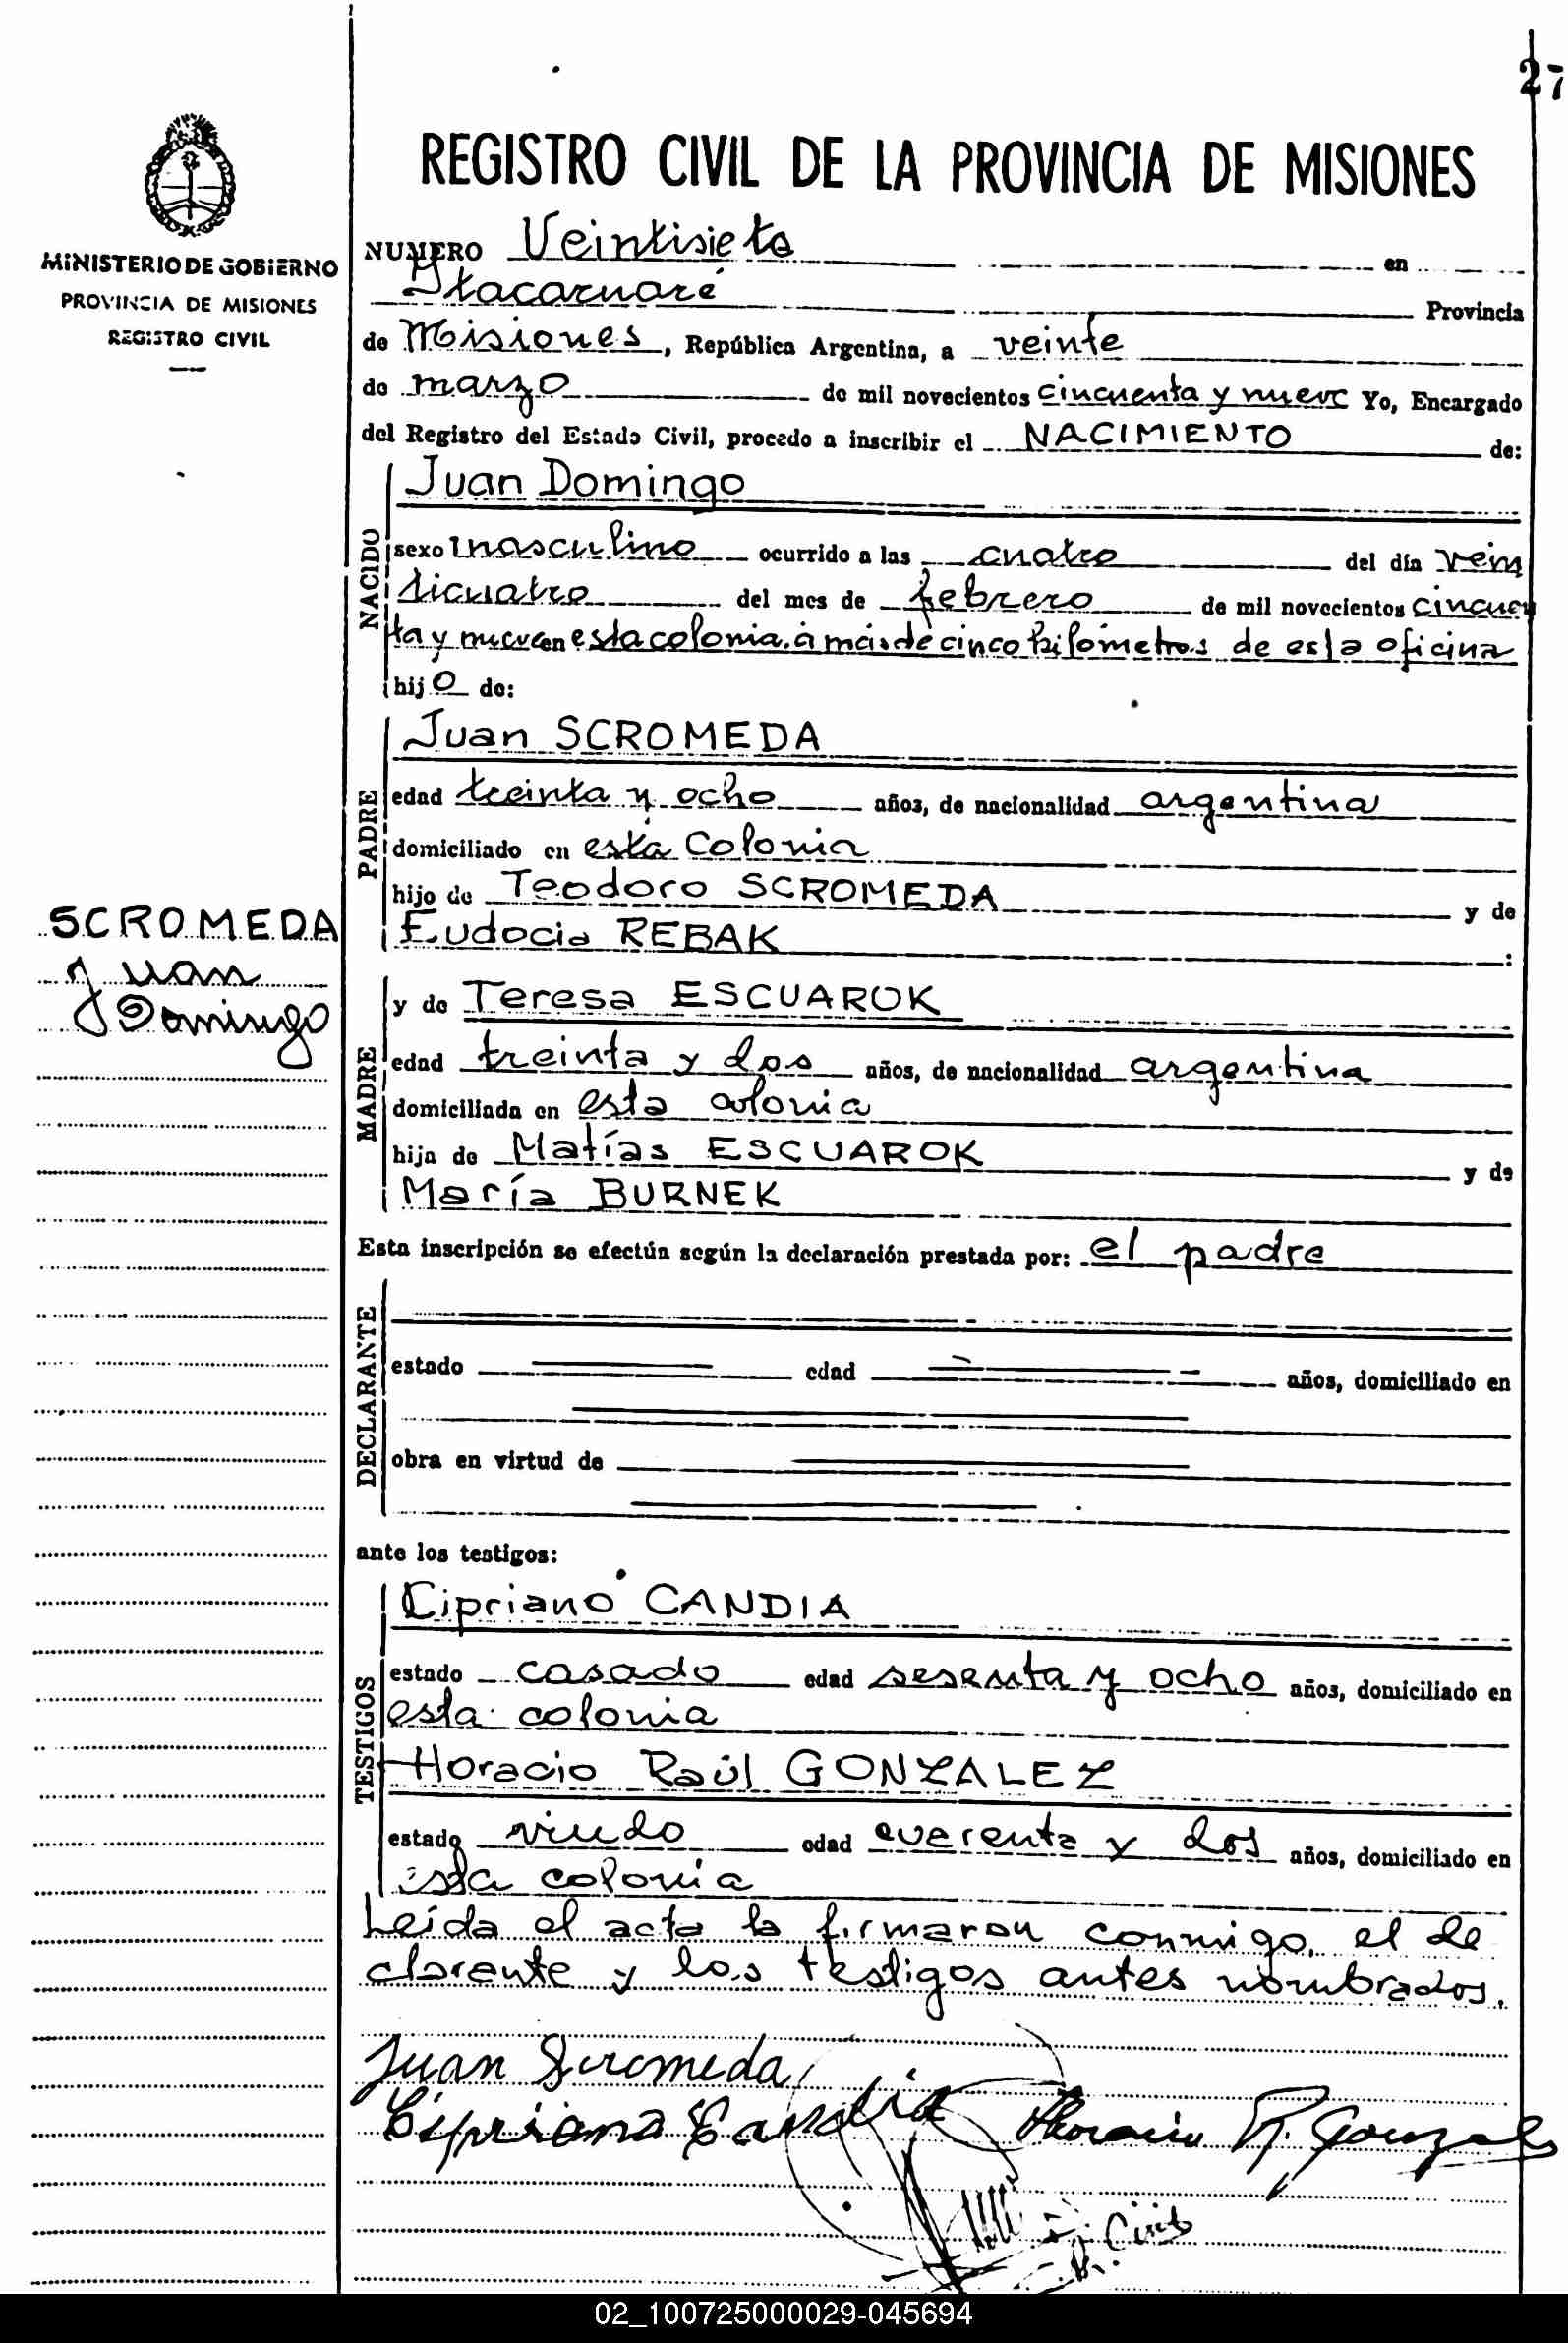 27
REGISTRO CIVIL DE LA PROVINCIA DE MISIONES
MINISTERIO DE GOBIERNO
PROVINCIA DE MISIONES
REGISTRO CIVIL
NUMERO Veintisiete en
Itacaruaré Provincia
de Misiones, República Argentina, a veinte
de marzo de mil novecientos cincuenta y nueve Yo, Encargado
del Registro del Estado Civil, procedo a inscribir el NACIMIENTO de:
NACIDO
Juan Domingo
sexo masculino ocurrido a las cuatro del día vein
ticuatro del mes de febrero de mil novecientos cincuen
ta y nueve en esta colonia, a más de cinco kilómetros de esta oficina
hijo de:
PADRE
Juan SCROMEDA
edad treinta y ocho años, de nacionalidad argentina
domiciliado en esta Colonia
hijo de Teodoro SCROMEDA y de
Eudocia REBAK :
SCROMEDA
Juan
Domingo
MADRE
y de Teresa ESCUAROK
edad treinta y dos años, de nacionalidad argentina
domiciliada en esta colonia
hija de Matías ESCUAROK y de
María BURNEK
Esta inscripción se efectúa según la declaración prestada por: el padre
DECLARANTE
estado edad años, domiciliado en
obra en virtud de
ante los testigos:
TESTIGOS
Cipriano CANDIA
estado casado edad sesenta y ocho años, domiciliado en
esta colonia
Horacio Raúl GONZALEZ
estado viudo edad cuarenta y dos años, domiciliado en
esta colonia
Leída el acta la firmaron conmigo, el de
clarante y los testigos antes nombrados.
Juan Scromeda
Cipriano Candia Horacio R. Gonzalez
02_100725000029-045694